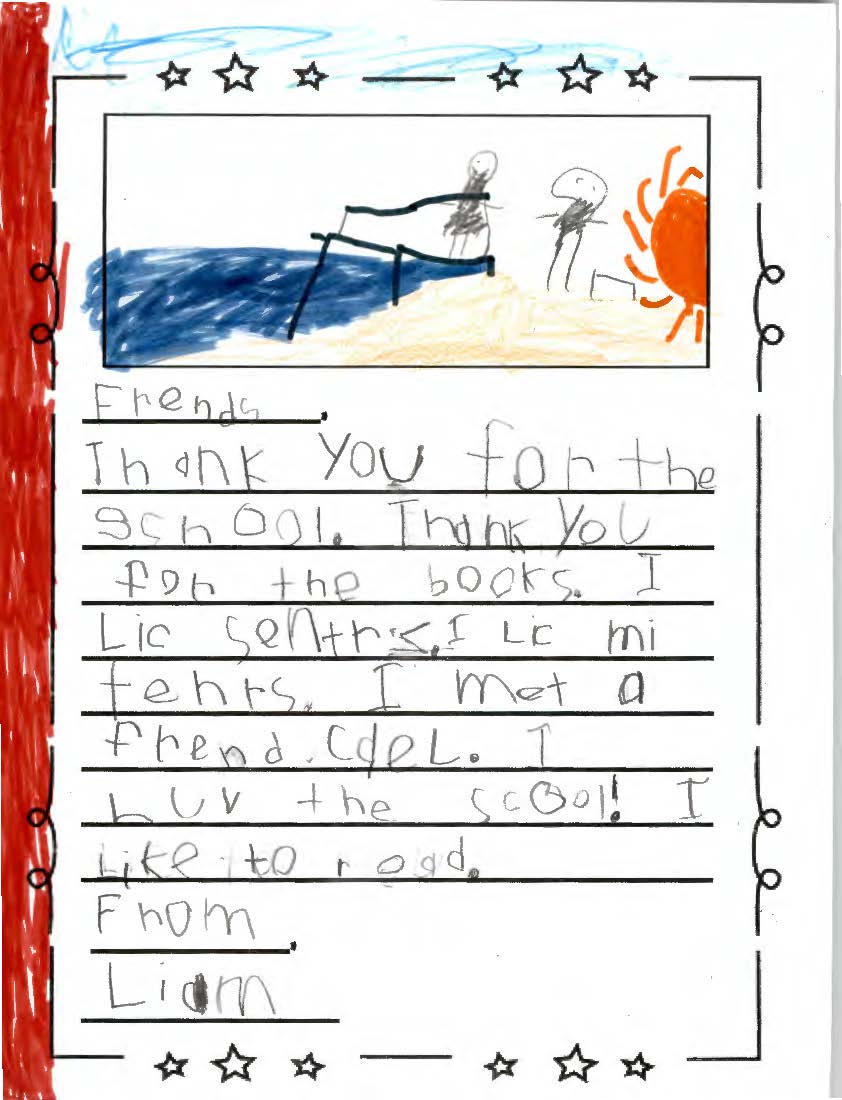 Frends,
Thank You for the
school. Thank You
for the books. I
Lic sentrs. I Lic mi
tehrs. I met a
frend. CdeL. I
Luv the scool! I
Like to read.
From,
Liam